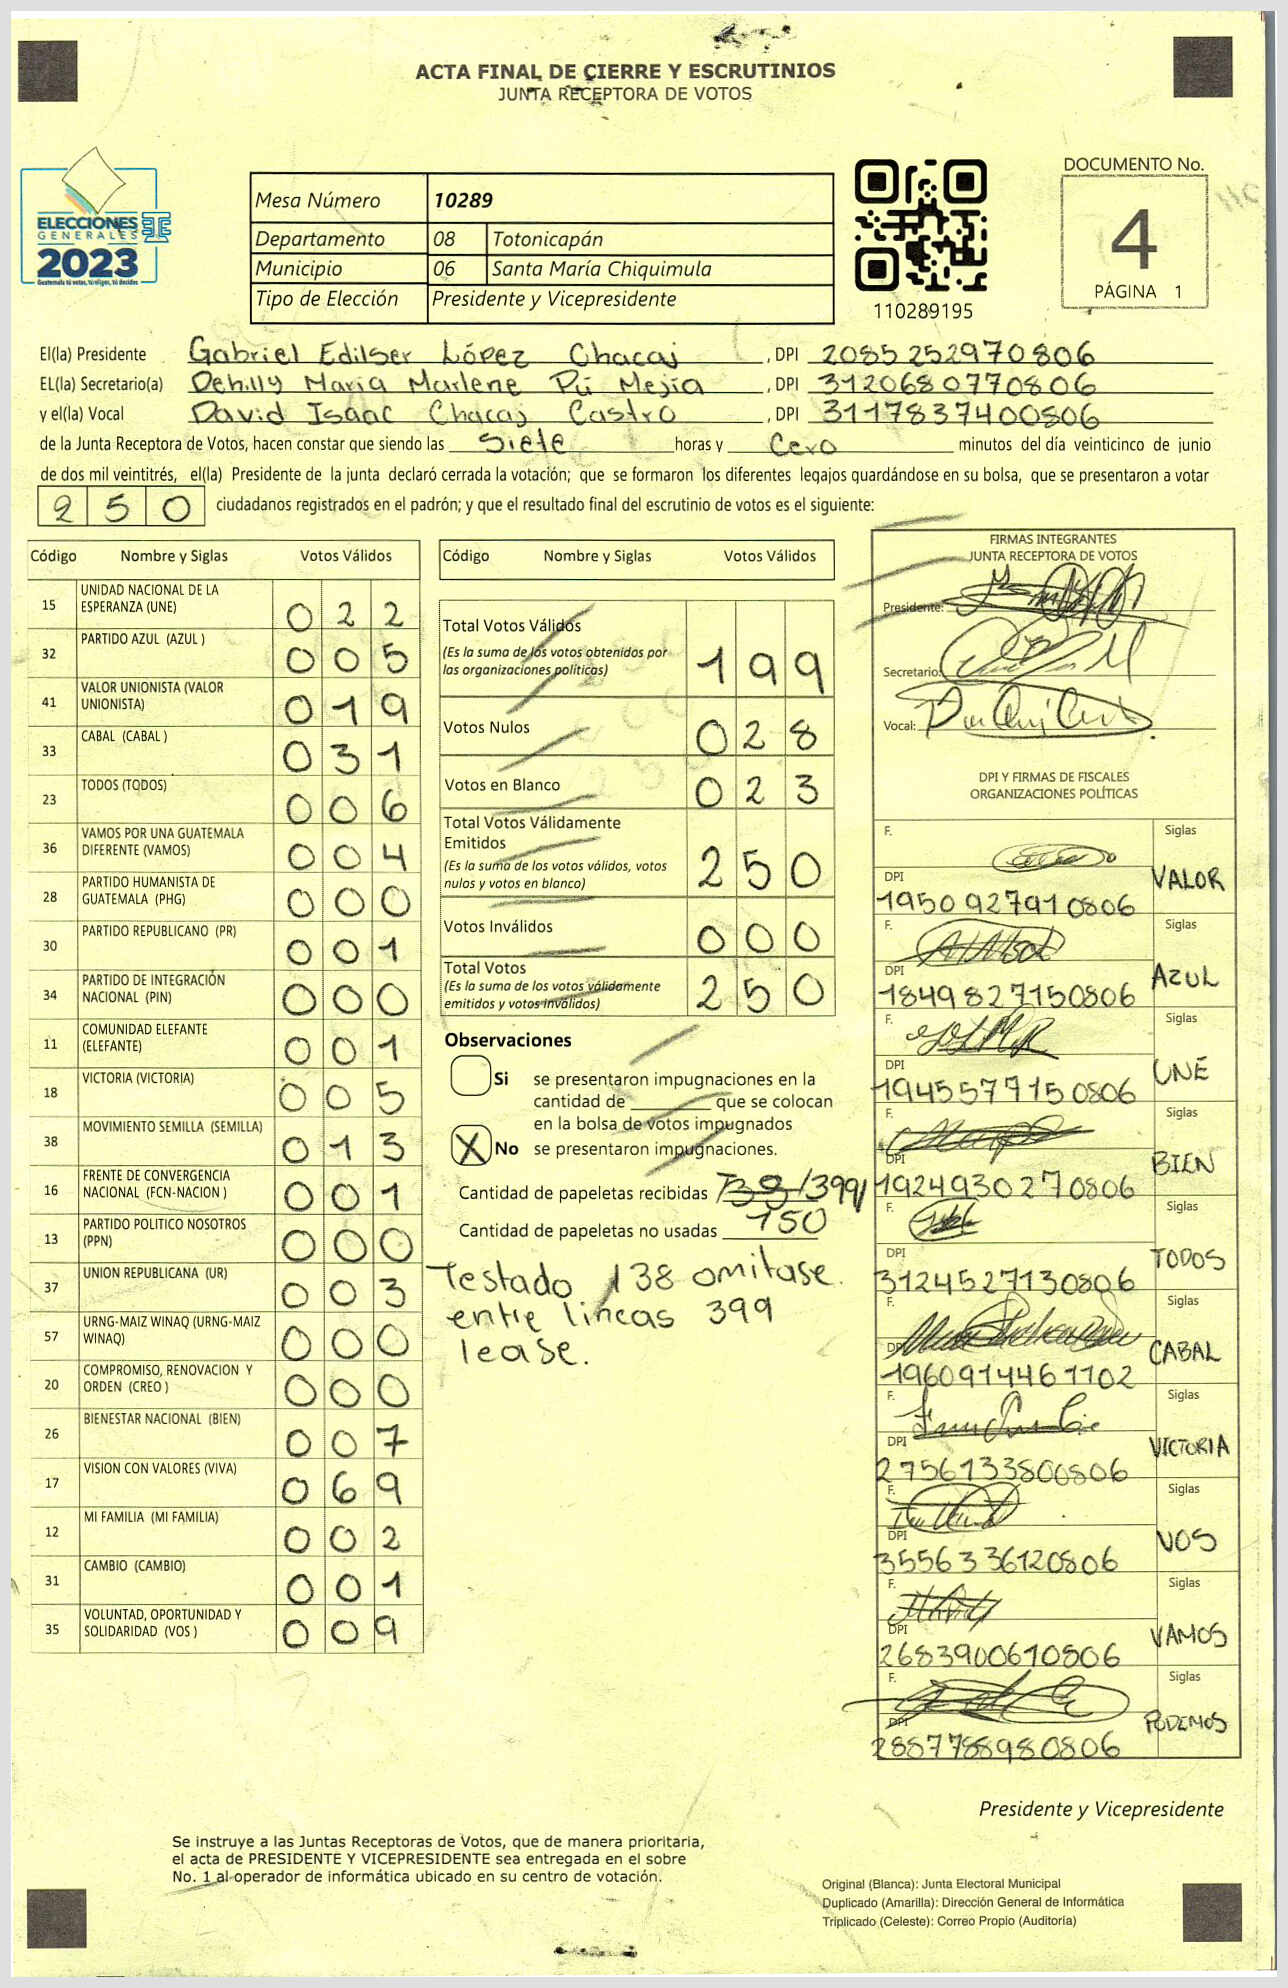 ACTA FINAL DE CIERRE Y ESCRUTINIOS
JUNTA RECEPTORA DE VOTOS
ELECCIONES
GENERALES
2023
Guatemala tú votas, tú eliges, tú decides
Mesa Número 10289
Departamento 08 Totonicapán
Municipio 06 Santa María Chiquimula
Tipo de Elección Presidente y Vicepresidente
110289195
DOCUMENTO No.
4
PÁGINA 1
El(la) Presidente Gabriel Edilser López Chacaj, DPI 2085252970806
EL(la) Secretario(a) Dehilly María Marlene Pú Mejía, DPI 3120680770806
y el(la) Vocal David Isaac Chacaj Castro, DPI 3117837400806
de la Junta Receptora de Votos, hacen constar que siendo las Siete horas y Cero minutos del día veinticinco de junio
de dos mil veintitrés, el(la) Presidente de la junta declaró cerrada la votación; que se formaron los diferentes legajos quardándose en su bolsa, que se presentaron a votar
250 ciudadanos registrados en el padrón; y que el resultado final del escrutinio de votos es el siguiente:
Código Nombre y Siglas Votos Válidos
15 UNIDAD NACIONAL DE LA ESPERANZA (UNE) 022
32 PARTIDO AZUL (AZUL ) 005
41 VALOR UNIONISTA (VALOR UNIONISTA) 019
33 CABAL (CABAL ) 031
23 TODOS (TODOS) 006
36 VAMOS POR UNA GUATEMALA DIFERENTE (VAMOS) 004
28 PARTIDO HUMANISTA DE GUATEMALA (PHG) 000
30 PARTIDO REPUBLICANO (PR) 001
34 PARTIDO DE INTEGRACIÓN NACIONAL (PIN) 000
11 COMUNIDAD ELEFANTE (ELEFANTE) 001
18 VICTORIA (VICTORIA) 005
38 MOVIMIENTO SEMILLA (SEMILLA) 013
16 FRENTE DE CONVERGENCIA NACIONAL (FCN-NACION ) 001
13 PARTIDO POLITICO NOSOTROS (PPN) 000
37 UNION REPUBLICANA (UR) 003
57 URNG-MAIZ WINAQ (URNG-MAIZ WINAQ) 000
20 COMPROMISO, RENOVACION Y ORDEN (CREO ) 000
26 BIENESTAR NACIONAL (BIEN) 007
17 VISION CON VALORES (VIVA) 069
12 MI FAMILIA (MI FAMILIA) 002
31 CAMBIO (CAMBIO) 001
35 VOLUNTAD, OPORTUNIDAD Y SOLIDARIDAD (VOS ) 009
Código Nombre y Siglas Votos Válidos
Total Votos Válidos 199
(Es la suma de los votos obtenidos por
las organizaciones políticas)
Votos Nulos 028
Votos en Blanco 023
Total Votos Válidamente
Emitidos 250
(Es la suma de los votos válidos, votos
nulos y votos en blanco)
Votos Inválidos 000
Total Votos 250
(Es la suma de los votos válidamente
emitidos y votos inválidos)
Observaciones
Si se presentaron impugnaciones en la
cantidad de ________ que se colocan
en la bolsa de votos impugnados
X No se presentaron impugnaciones.
Cantidad de papeletas recibidas 138 /399/
Cantidad de papeletas no usadas 150
Testado 138 omitase.
entre lineas 399
lease.
FIRMAS INTEGRANTES
JUNTA RECEPTORA DE VOTOS
Presidente:
Secretario:
Vocal:
DPI Y FIRMAS DE FISCALES
ORGANIZACIONES POLÍTICAS
F. Siglas
DPI 1950927910806 VALOR
F. Siglas
DPI 1849827150806 AZUL
F. Siglas
DPI 1945577150806 UNE
F. Siglas
DPI 1924930270806 BIEN
F. Siglas
DPI 3124527130806 TODOS
F. Siglas
DPI 1960914461102 CABAL
F. Siglas
DPI 2756133800806 VICTORIA
F. Siglas
DPI 3556336120806 VOS
F. Siglas
DPI 2683900610806 VAMOS
F. Siglas
DPI 2887788980806 PODEMOS
Presidente y Vicepresidente
Se instruye a las Juntas Receptoras de Votos, que de manera prioritaria,
el acta de PRESIDENTE Y VICEPRESIDENTE sea entregada en el sobre
No. 1 al operador de informática ubicado en su centro de votación.
Original (Blanca): Junta Electoral Municipal
Duplicado (Amarilla): Dirección General de Informática
Triplicado (Celeste): Correo Propio (Auditoría)